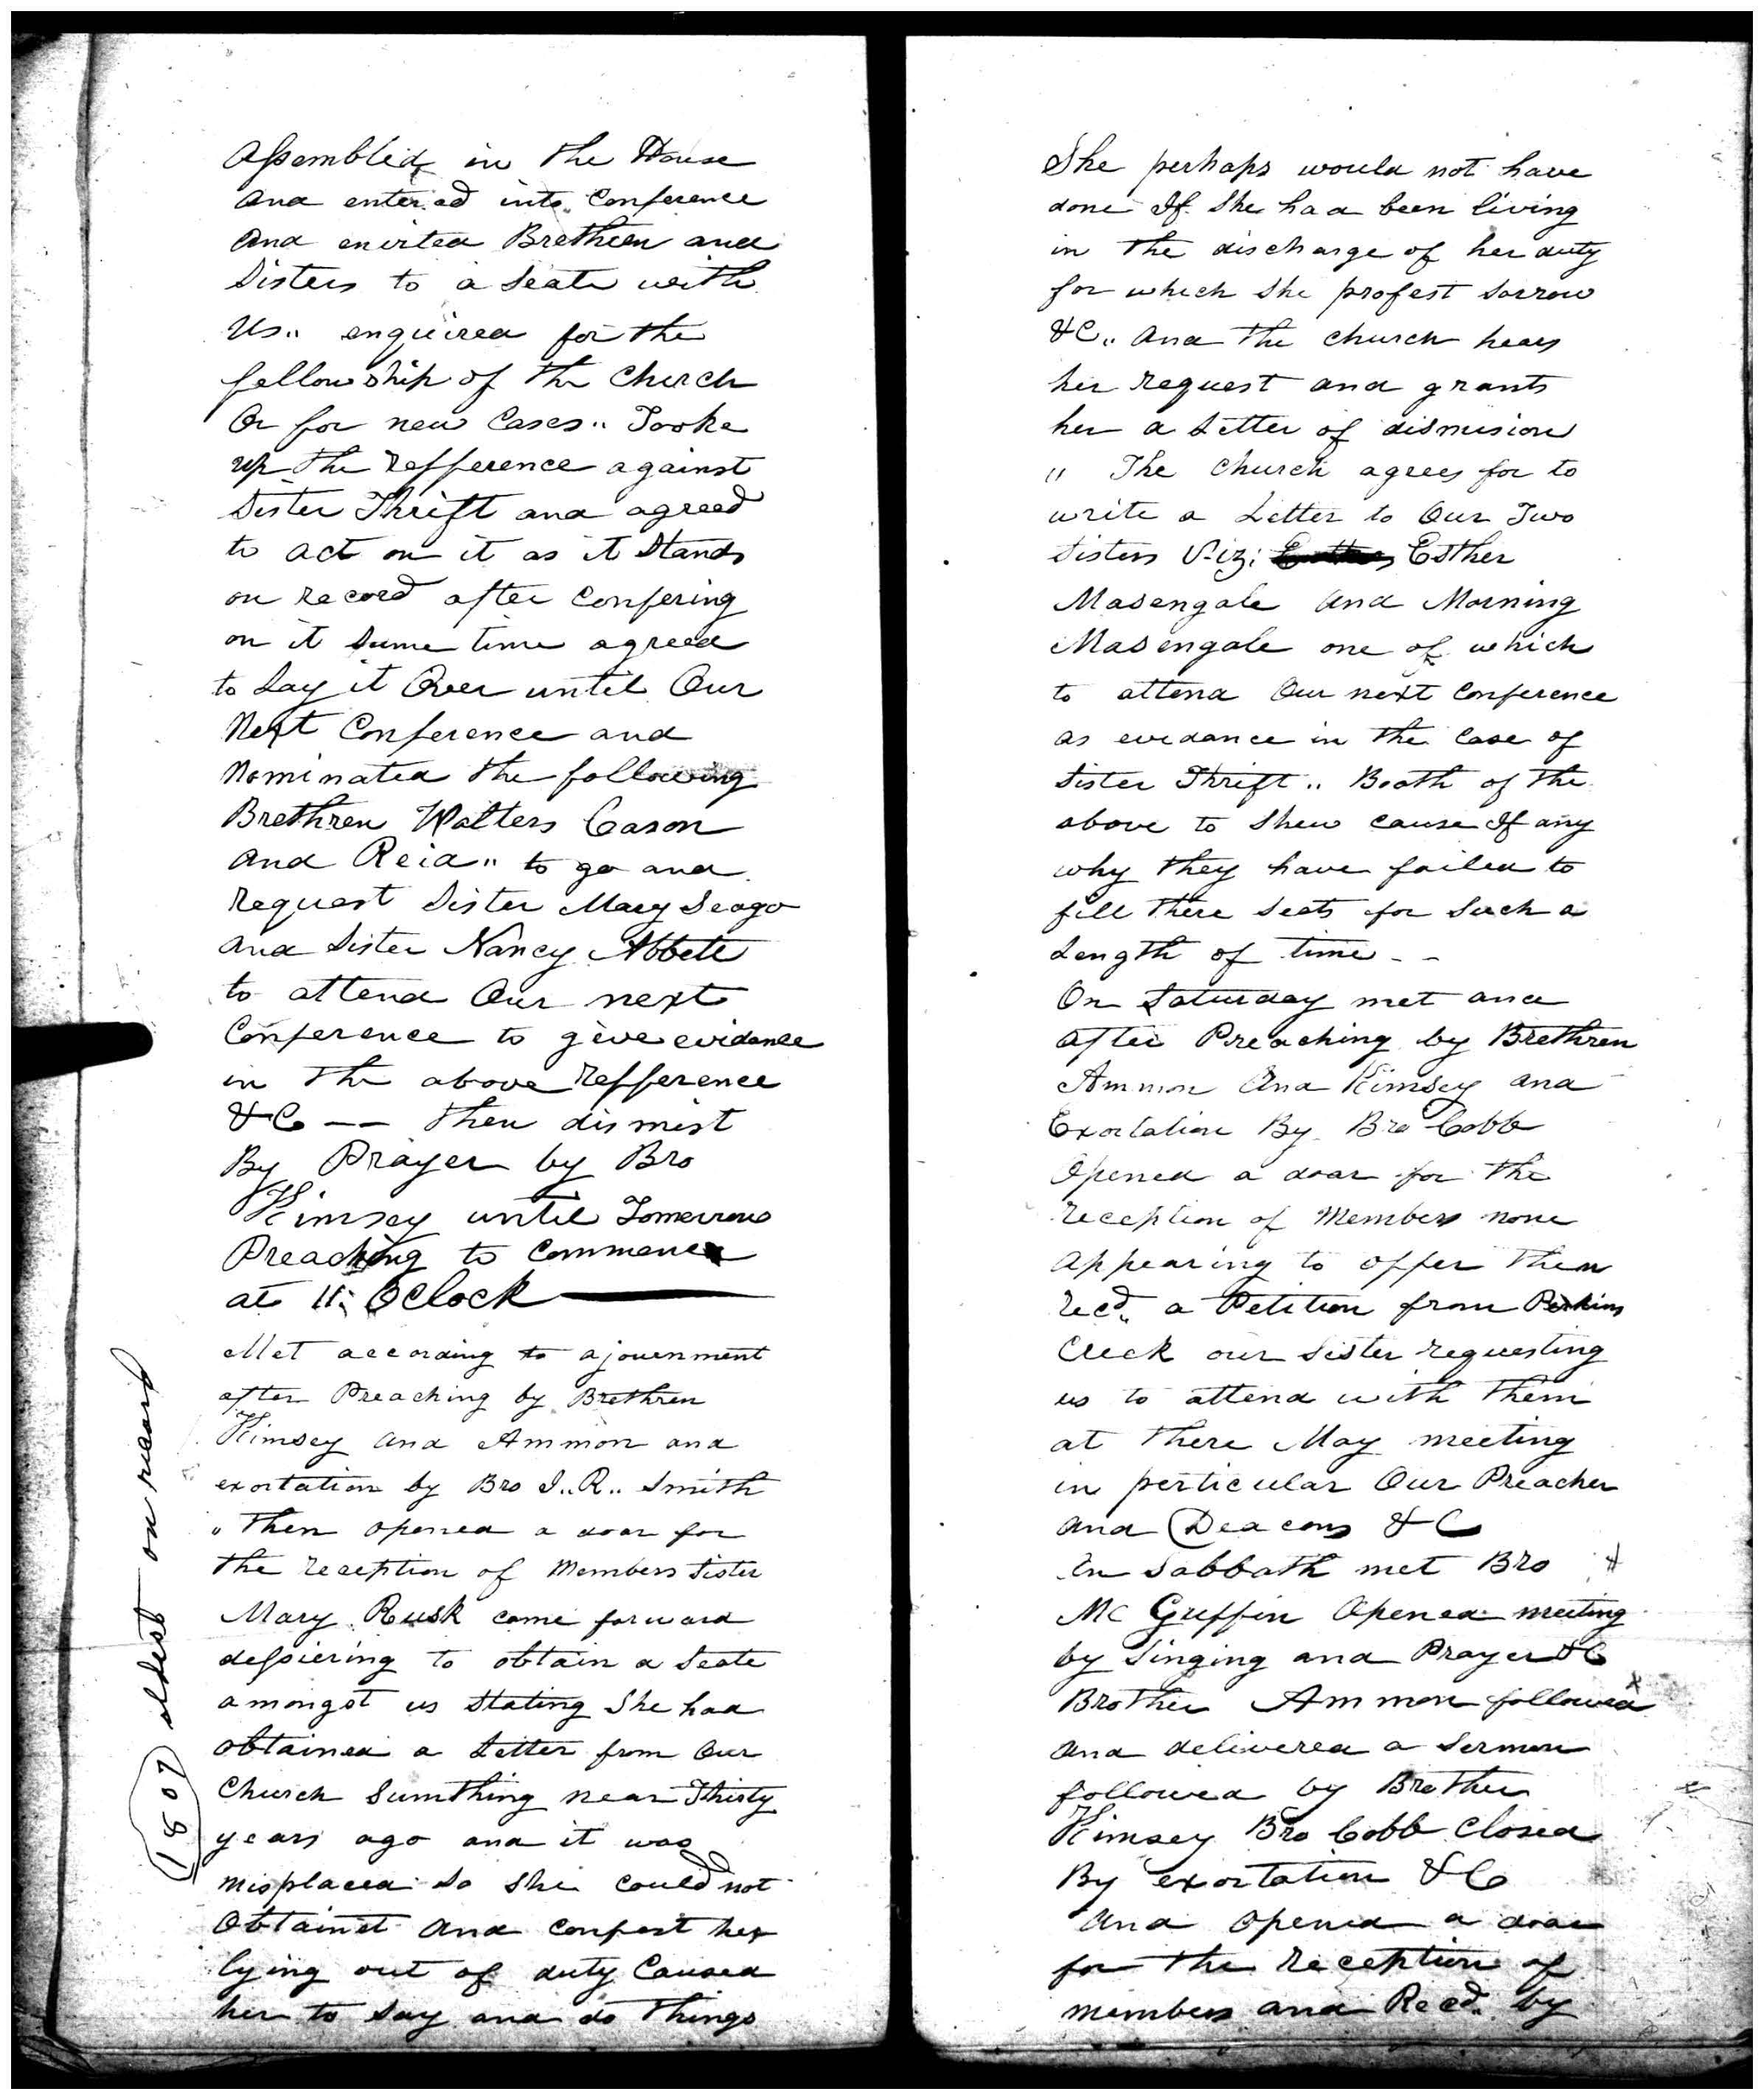 Assembled in the House
and entered into Conference
And envited Bretheen and
Sisters to a Seate with
Us,, enquired for the
fellowship of the Church
Or for new Cases,, Tooke
up the Refference against
Sister Thrift and agreed
to act on it as it Stands
on record after Confering
on it Sume time agreed
to Lay it Over until Our
Next Conference and
Nominated the following
Brethren Walters Cason
and Reid,, to go and
request Sister Mary Seago
and Sister Nancy Abbete
to attend Our next
Conference to give evidance
in the above Refference
&C —— then dismist
By Prayer by Bro
Kimsey until Tomerrow
Preaching to Commence
at 11: OClock
Met according to ajouernment
after Preaching by Brethren
Kimsey and Ammon and
exortation by Bro J.. R.. Smith
,, Then opened a doar for
the reception of Members Sister
Mary Rusk come forward
desiering to obtain a Seate
amongst us Stating She had
obtained a Letter from Our
Church Sumthing near Thirty
years ago and it was
misplaced So She Could not
Obtainet and confest her
lying out of duty Caused
her to Say and do things
1807 oldest on record
She perhaps would not have
done If She had been living
in the discharge of her duty
for which She profest Sorrow
&C,, And the church hears
her request and grants
her a Letter of dismision
,, The Church agrees for to
write a Letter to Our Two
Sisters Viz; Esther
Masengale And Morning
Masengale one of which
to attend Our next Conference
as evidance in the Case of
Sister Thrift ,, Booth of the
above to Shew cause If any
why they have failed to
fill there Seats for Such a
Length of time - -
On Saturday met and
after Preaching by Brethren
Ammon And Kimsey and
Exortation By Bro Cobb
Opened a doar for the
reception of Members none
appearing to offer then
recd,, a Petition from Perkins
Creek our Sister requesting
us to attend with them
at there May meeting
in perticular Our Preacher
and Deacons &C
On Sabbath met Bro
Mc Guffin Opened meeting
by Singing and Prayer &C
Brother Ammon followed
and delivered a Sermon
followed by Brother
Kimsey Bro Cobb Closed
By exortation &C
And opened a doar
for the Reception of
members and Recd. by